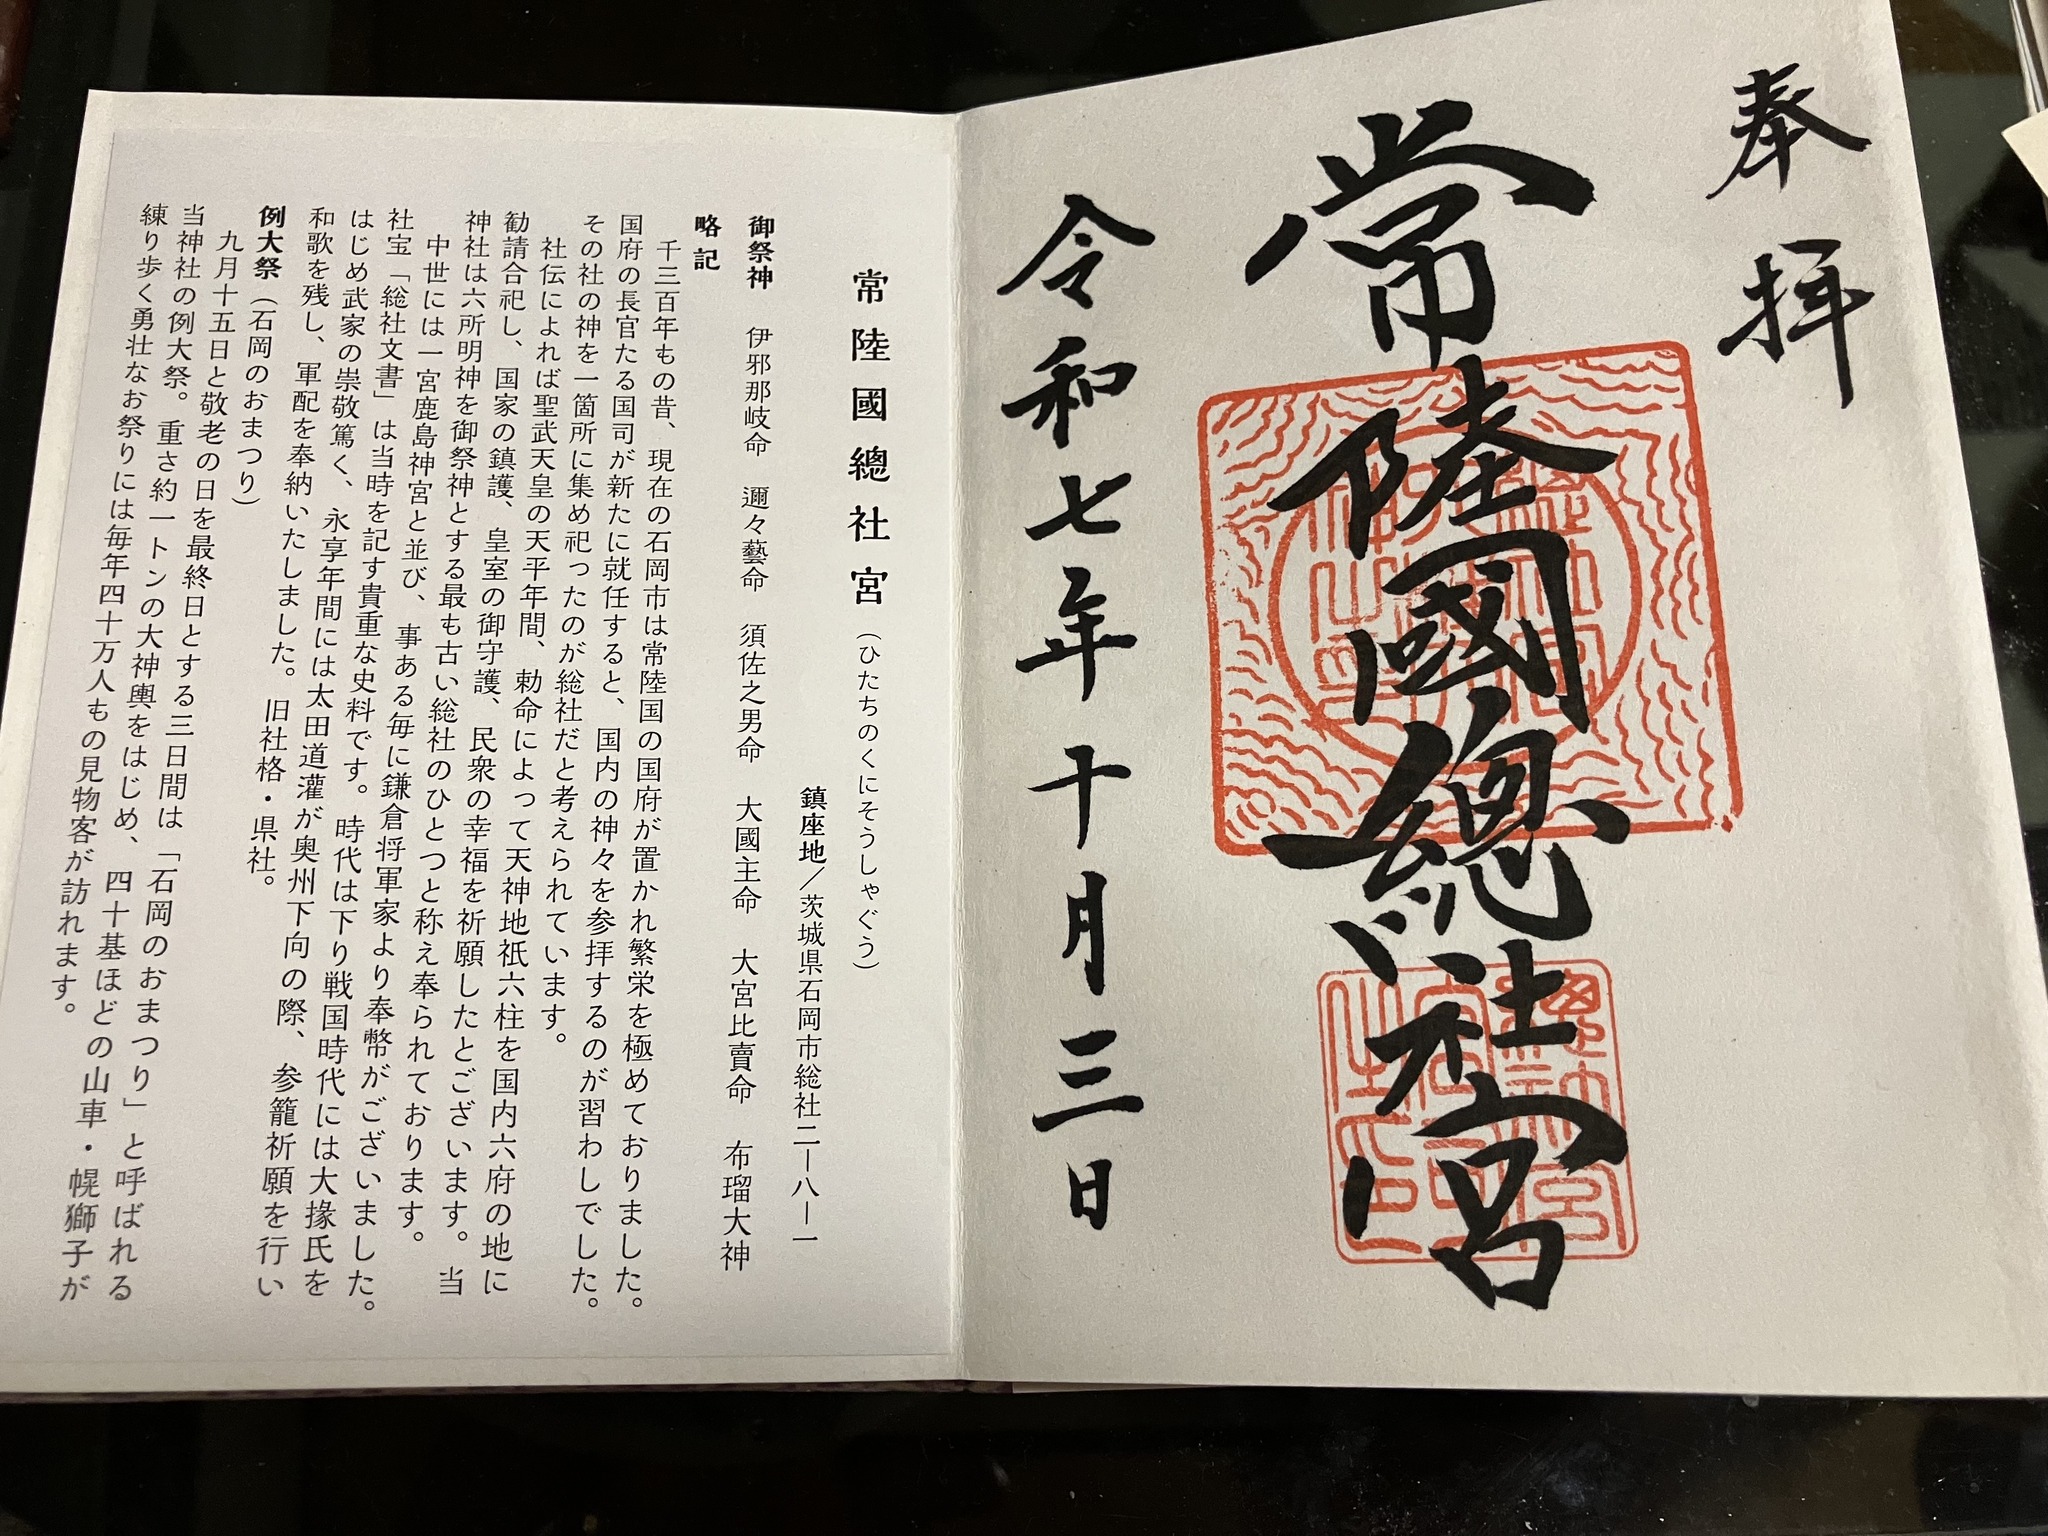 奉拝
常陸國總社宮
令和七年十月三日
常陸國總社宮（ひたちのくにそうしゃぐう）
鎮座地／茨城県石岡市総社二ー八ー一
御祭神 伊邪那岐命 邇々藝命 須佐之男命 大國主命 大宮比賣命 布瑠大神
略記
千三百年もの昔、現在の石岡市は常陸国の国府が置かれ繁栄を極めておりました。
国府の長官たる国司が新たに就任すると、国内の神々を参拝するのが習わしでした。
その社の神を一箇所に集め祀ったのが総社だと考えられています。
社伝によれば聖武天皇の天平年間、勅命によって天神地祇六柱を国内六府の地に
勧請合祀し、国家の鎮護、皇室の御守護、民衆の幸福を祈願したとございます。当
神社は六所明神を御祭神とする最も古い総社のひとつと称え奉られております。
中世には一宮鹿島神宮と並び、事ある毎に鎌倉将軍家より奉幣がございました。
社宝「総社文書」は当時を記す貴重な史料です。時代は下り戦国時代には大掾氏を
はじめ武家の崇敬篤く、永享年間には太田道灌が奥州下向の際、参籠祈願を行い
和歌を残し、軍配を奉納いたしました。旧社格・県社。
例大祭（石岡のおまつり）
九月十五日と敬老の日を最終日とする三日間は「石岡のおまつり」と呼ばれる
当神社の例大祭。重さ約一トンの大神輿をはじめ、四十基ほどの山車・幌獅子が
練り歩く勇壮なお祭りには毎年四十万人もの見物客が訪れます。